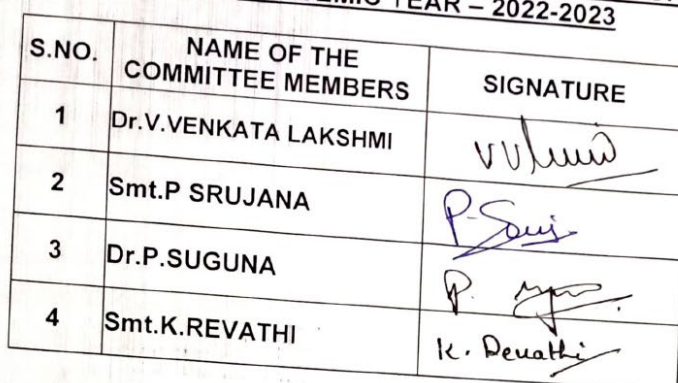 YEAR – 2022-2023
S.NO. NAME OF THE COMMITTEE MEMBERS SIGNATURE
1 Dr.V.VENKATA LAKSHMI
2 Smt.P SRUJANA
3 Dr.P.SUGUNA
4 Smt.K.REVATHI K. Revathi